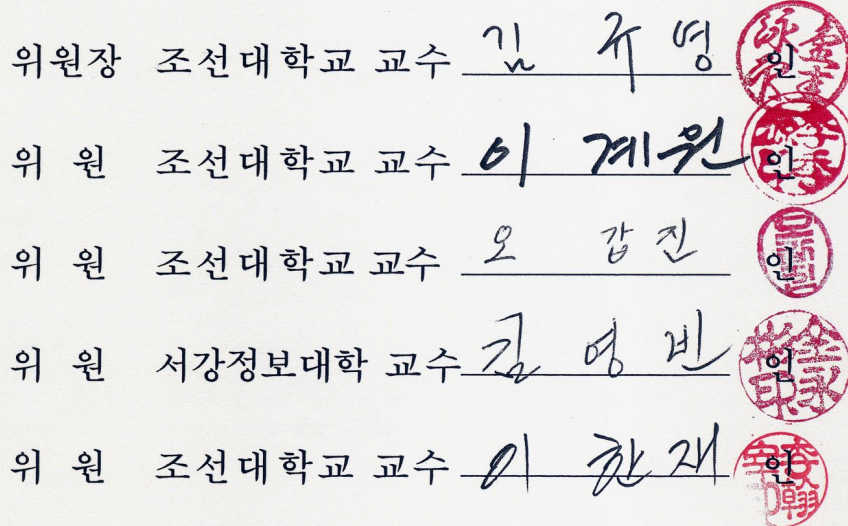 위원장 조선대학교 교수 김 규 영 인
위 원 조선대학교 교수 이 계원 인
위 원 조선대학교 교수 오 갑 진 인
위 원 서강정보대학 교수 김 영 빈 인
위 원 조선대학교 교수 이 한 재 인